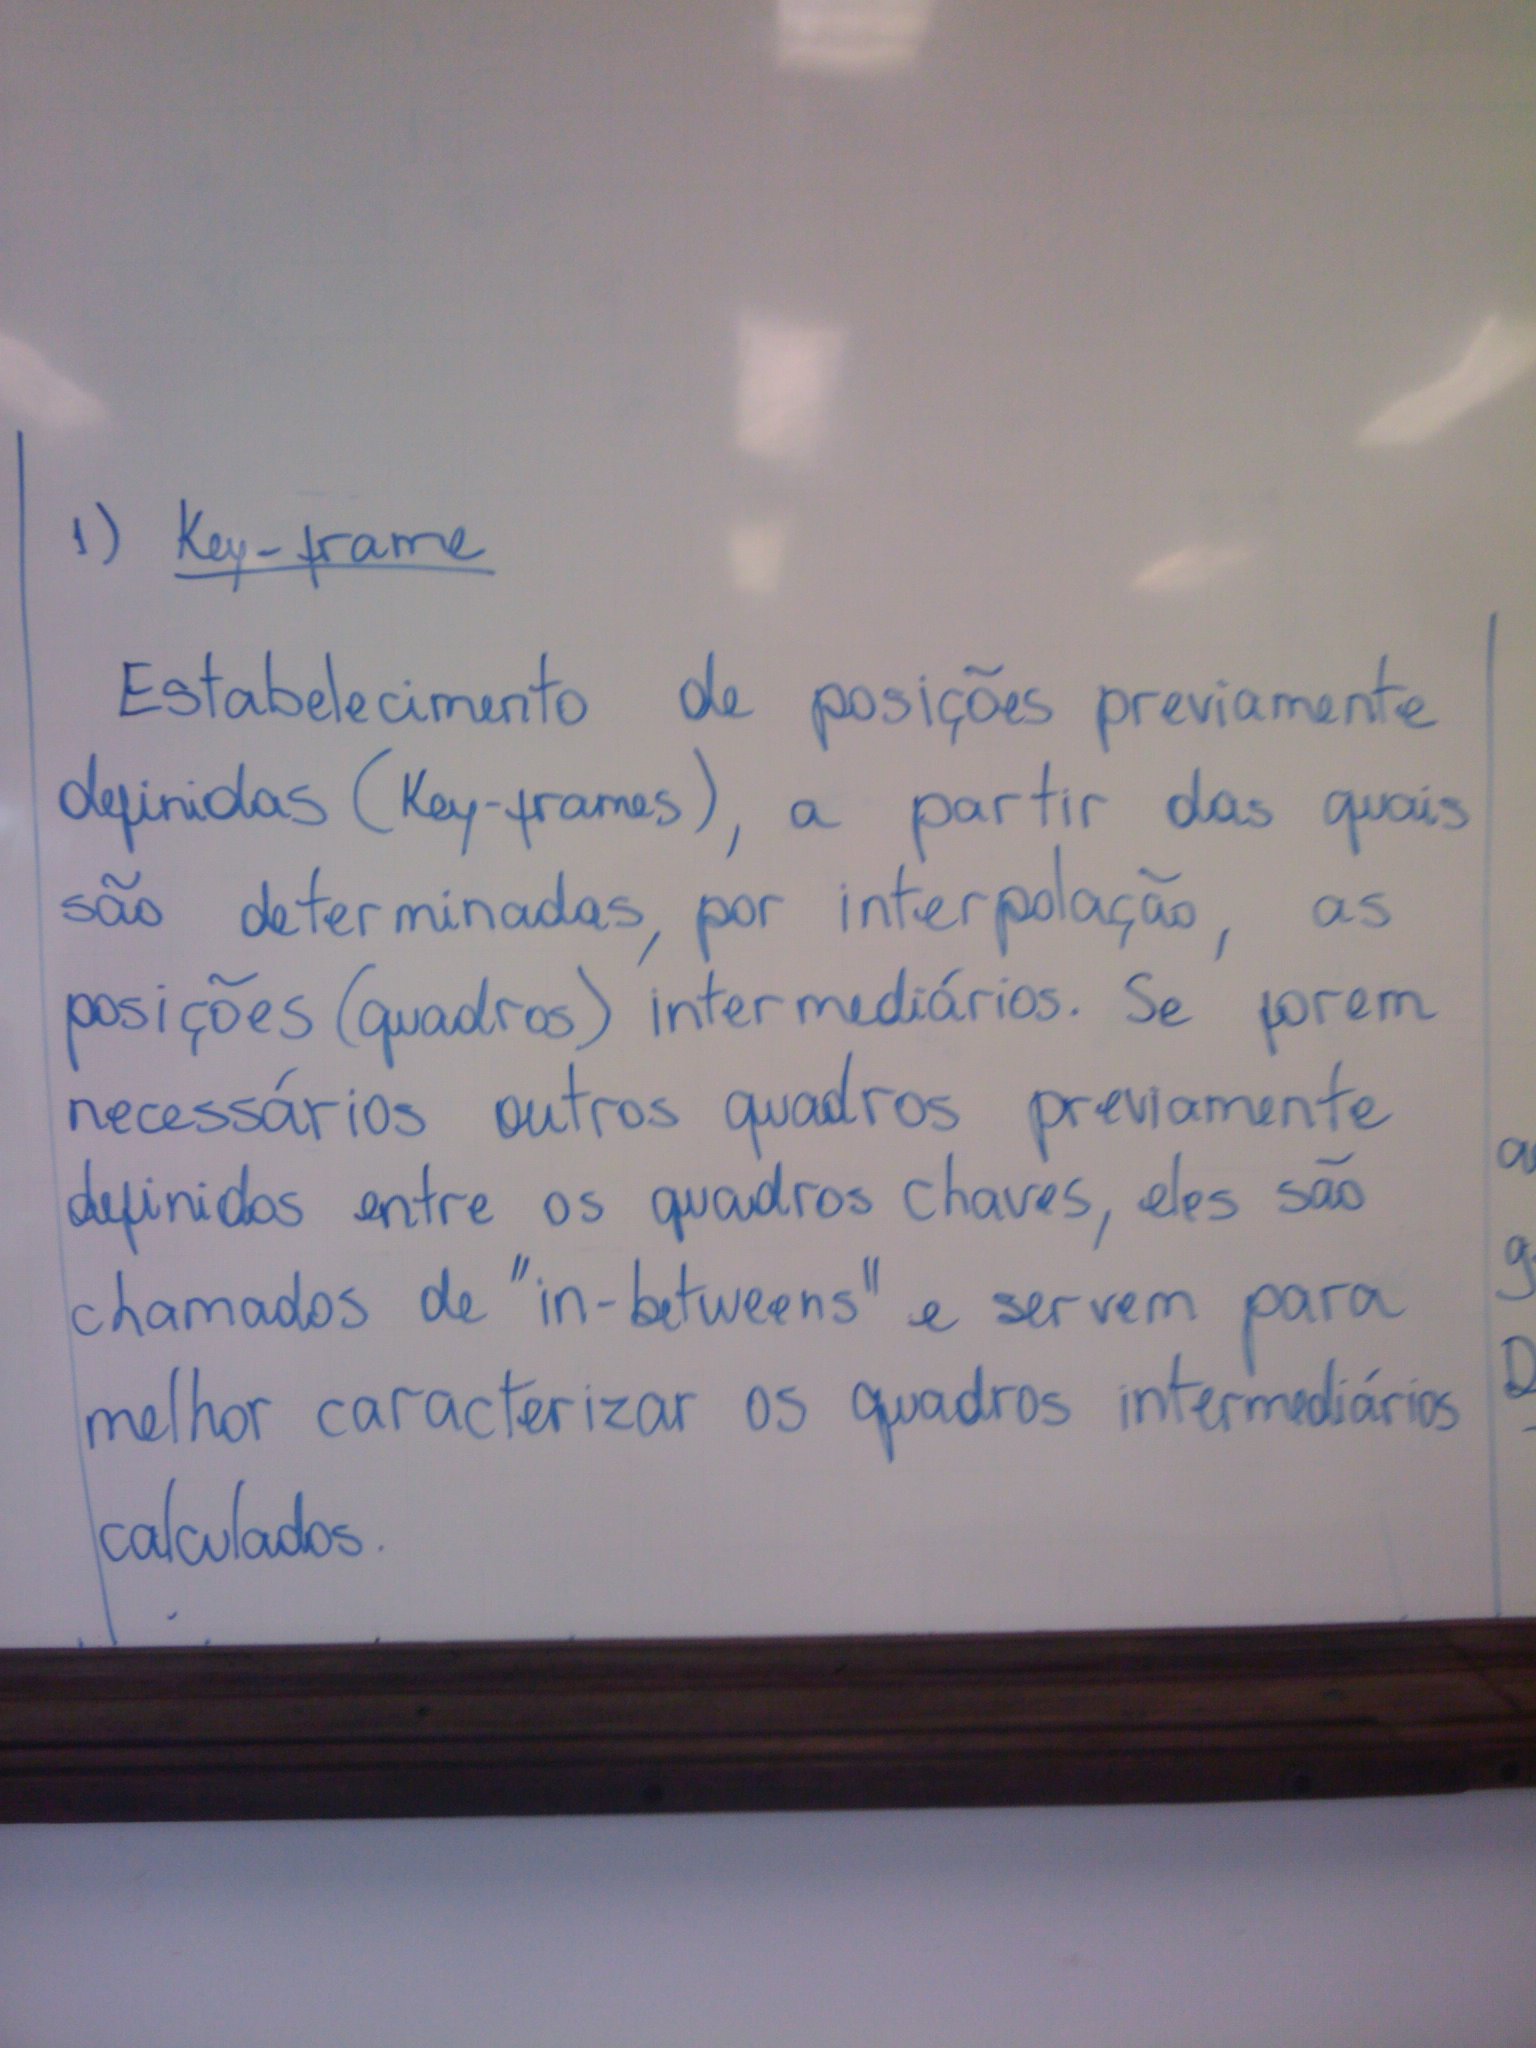 1) Key-frame
Estabelecimento de posições previamente
definidas (Key-frames), a partir das quais
são determinadas, por interpolação, as
posições (quadros) intermediários. Se forem
necessários outros quadros previamente
definidos entre os quadros chaves, eles são
chamados de "in-betweens" e servem para
melhor caracterizar os quadros intermediários
calculados.